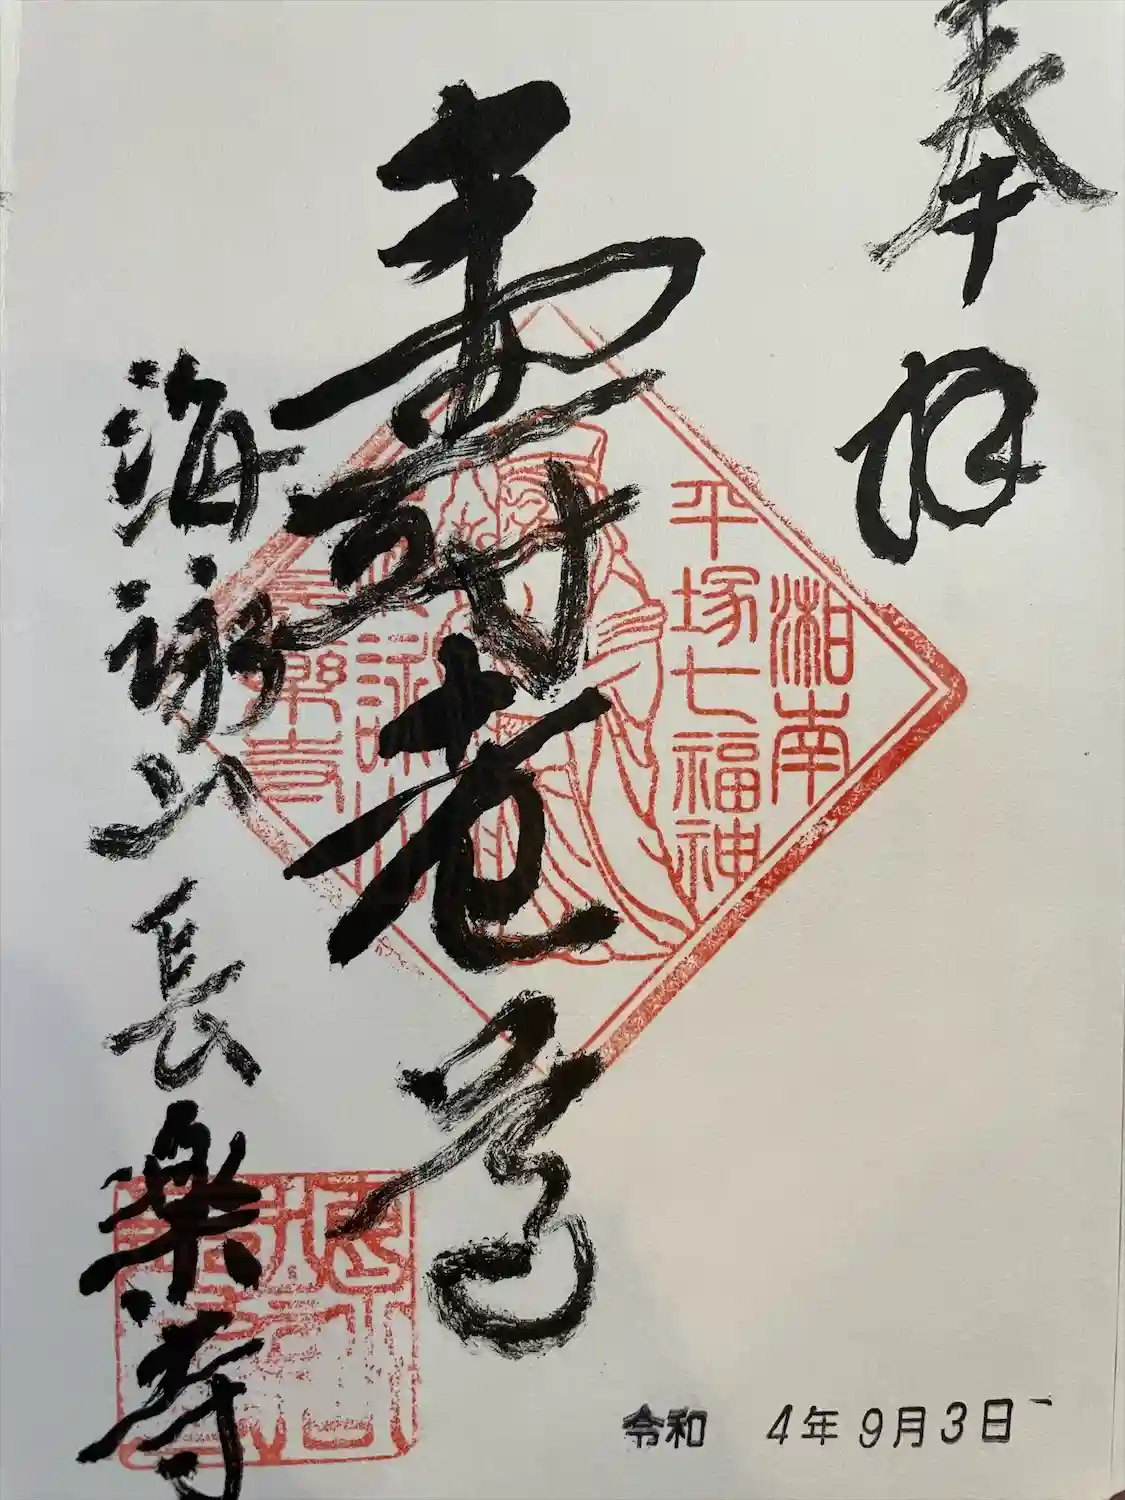 奉拝
湘南
平塚七福神
寿老尊
海詠山
長楽寺
海詠山長楽寺
令和 4年9月3日